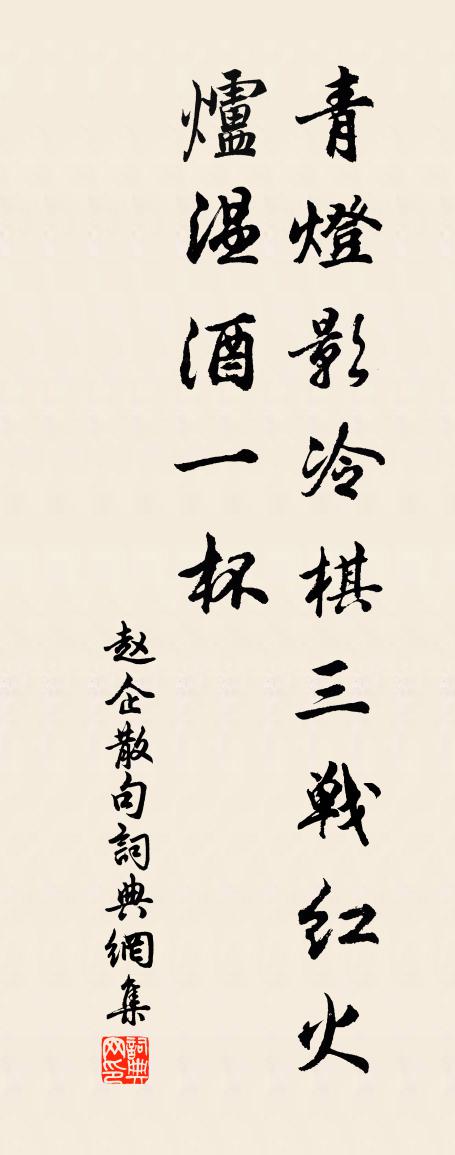 青燈影冷棋三戰紅火
爐温酒一杯
赵企散句詞典網集
詞典网印